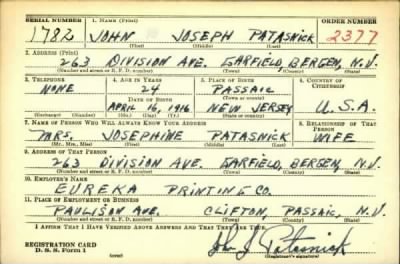 SERIAL NUMBER 1. NAME (Print) ORDER NUMBER
1782 JOHN JOSEPH PATASNICK 2377
(First) (Middle) (Last)
2. ADDRESS (Print)
263 DIVISION AVE. GARFIELD, BERGEN, N.J.
(Number and street or R. F. D. number) (Town) (County) (State)
3. TELEPHONE 4. AGE IN YEARS 5. PLACE OF BIRTH 6. COUNTRY OF CITIZENSHIP
NONE 24 PASSAIC
DATE OF BIRTH (Town or county)
APRIL 16, 1916 NEW JERSEY U.S.A.
(Exchange) (Number) (Mo.) (Day) (Yr.) (State or country)
7. NAME OF PERSON WHO WILL ALWAYS KNOW YOUR ADDRESS 8. RELATIONSHIP OF THAT PERSON
MRS. JOSEPHINE PATASNICK WIFE
(Mr., Mrs., Miss) (First) (Middle) (Last)
9. ADDRESS OF THAT PERSON
263 DIVISION AVE. GARFIELD, BERGEN, N.J.
(Number and street or R. F. D. number) (Town) (County) (State)
10. EMPLOYER'S NAME
EUREKA PRINTING CO.
11. PLACE OF EMPLOYMENT OR BUSINESS
PAULISON AVE. CLIFTON, PASSAIC, N.J.
(Number and street or R. F. D. number) (Town) (County) (State)
I AFFIRM THAT I HAVE VERIFIED ABOVE ANSWERS AND THAT THEY ARE TRUE.
REGISTRATION CARD
D. S. S. Form 1 (over) (Registrant's signature)
John J. Patasnick